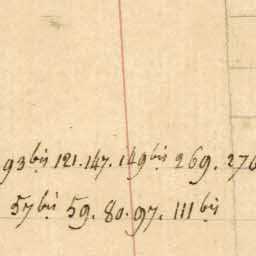 93 bis 121. 147. 149 bis 269. 276
57 bis 59. 80. 97. 111 bis